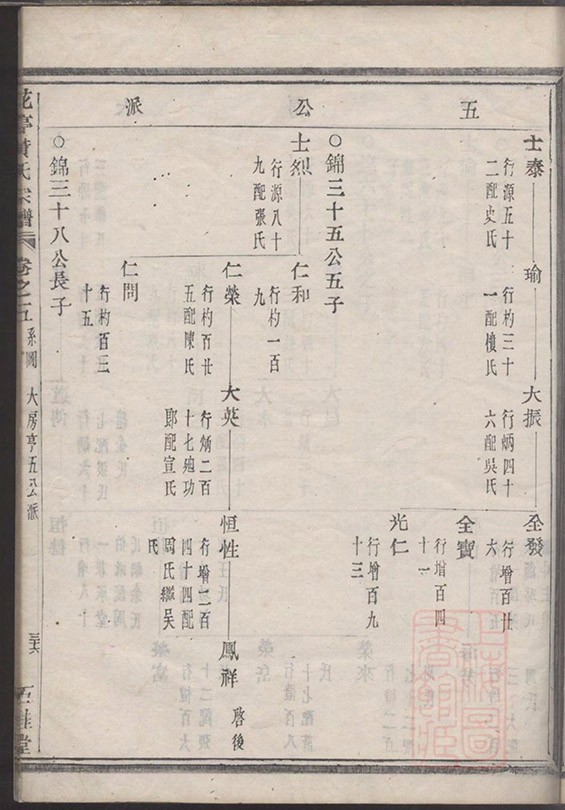 五公派
士泰
行源五十
二配史氏
瑜
行杓三十
一配樓氏
大振
行炳四十
六配吳氏
全發
行增百廿
六
全寶
行增百四
十一
光仁
行增百九
十三
○錦三十五公五子
士烈
行源八十
九配張氏
仁和
行杓一百
九
仁榮
行杓百廿
五配陳氏
大英
行炳二百
十七殉功
郎配宣氏
恒性
行增二百
四十四配
周氏繼吳
氏
鳳祥 啓後
仁問
行杓百三
十五
○錦三十八公長子
花亭 氏宗譜 卷之五 系圖 大房亨五公派 三六 五桂堂